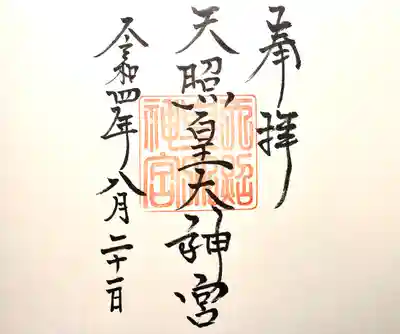 奉拝
天照皇大神宮
令和四年八月二十一日